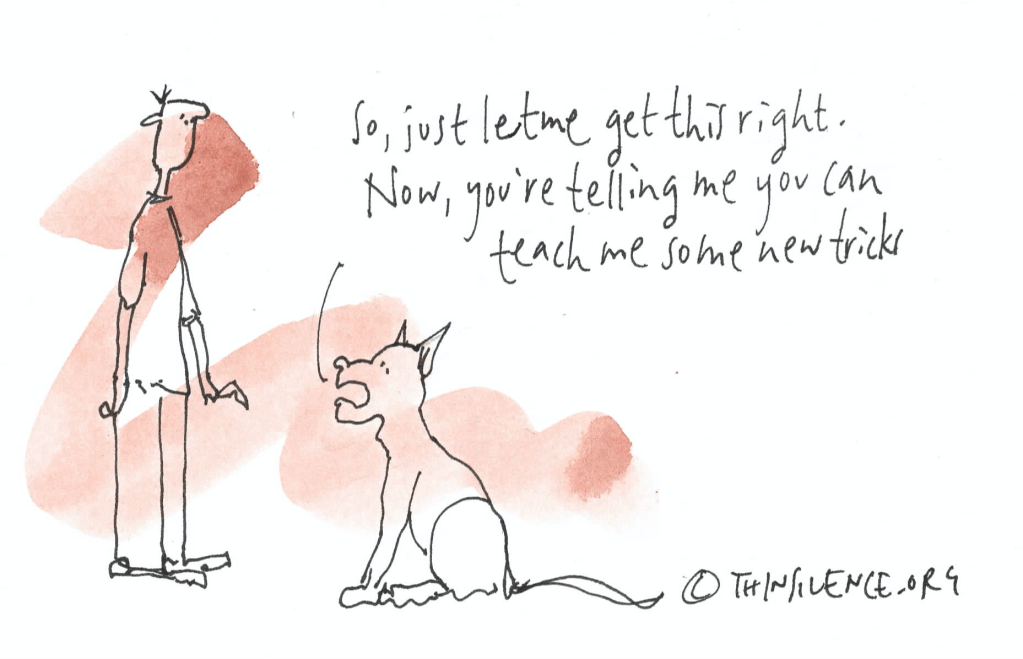 So, just let me get this right.
Now, you're telling me you can
teach me some new tricks
© THINSILENCE.ORG